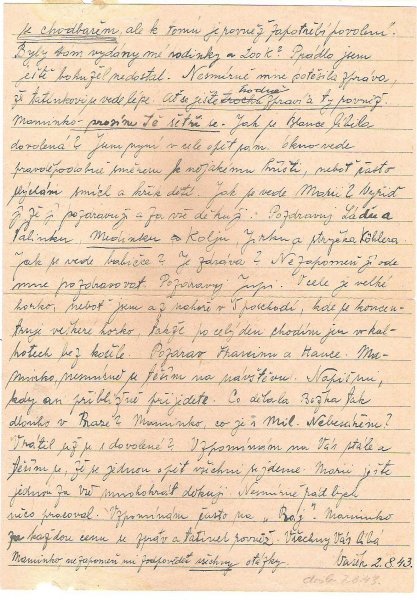 je chodbařem, ale k tomu je rovněž zapotřebí povolení.
Byly Vám vydány mé hodinky a 200K? Prádlo jsem
ještě bohužel nedostal. Nesmírně mne potěšila zpráva,
že tatínkovi se vede lépe. Ať se ještě trochu hodně spraví a Ty rovněž.
Maminko prosím Tě šetři se. Jak se Blance líbila
dovolená? Jsem nyní v cele opět sám. Okno vede
pravděpodobně směrem k nějakému hřišti, neboť často
slyším smích a křik dětí. Jak se vede Marii? Vyřiď
jí že ji pozdravuji a za vše děkuji. Pozdravuj Láďu a
Palinku, Mědinku a Kolju, Jirku a strýčka Köhlera
Jak se vede babičce? Je zdráva? Nezapomeň ji ode
mne pozdravovat. Pozdravuj V cele je velké
horko, neboť jsem až nahoře v 5 poschodí, kde je koncen-
truje veškeré horko, takže po celý den chodím jen v kal-
hotech bez košile. Pozdrav a Hance. Ma-
minko, nesmírně se těším na návštěvu. Napiš mi,
kdy asi přibližně přijedete. Co dělala Božka tak
dlouho v Praze? Maminko, co je s Mil. Nebeským?
Vrátil se už s dovolené? Vzpomínám na Vás stále a
těším se, že se jednou opět všichni sejdeme. Marii ještě
jednou za vše mnohokrát děkuji. Nesmírně rád bych
něco pracoval. Vzpomínám často na „Ráj". Maminko
za každou cenu se zprav a tatínek rovněž. Všechny Vás líbá
Maminko nezapomeň mi zodpovědět všechny otázky. Vašík 2.8.43.
2.8.43.